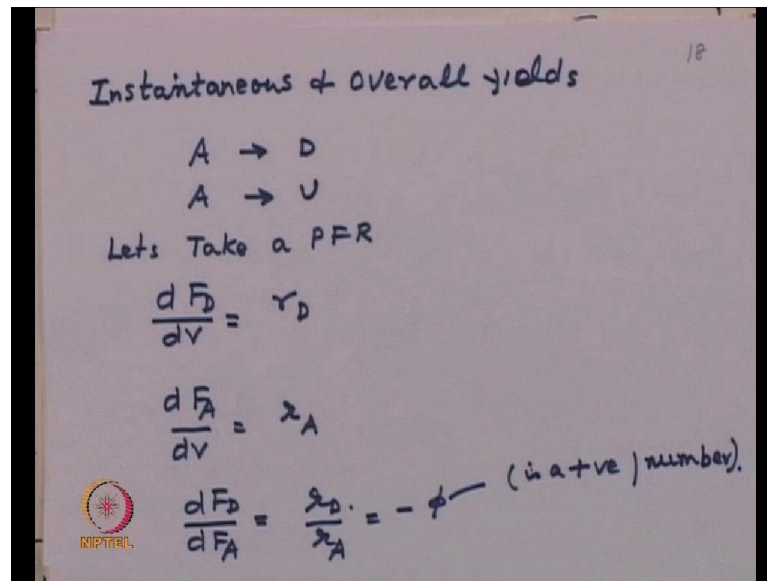 18
Instantaneous & overall yields
A → D
A → U
Lets Take a PFR
dF_D/dV = r_D
dF_A/dV = r_A
dF_D/dF_A = r_D/r_A = - φ (is a +ve) number).
NPTEL